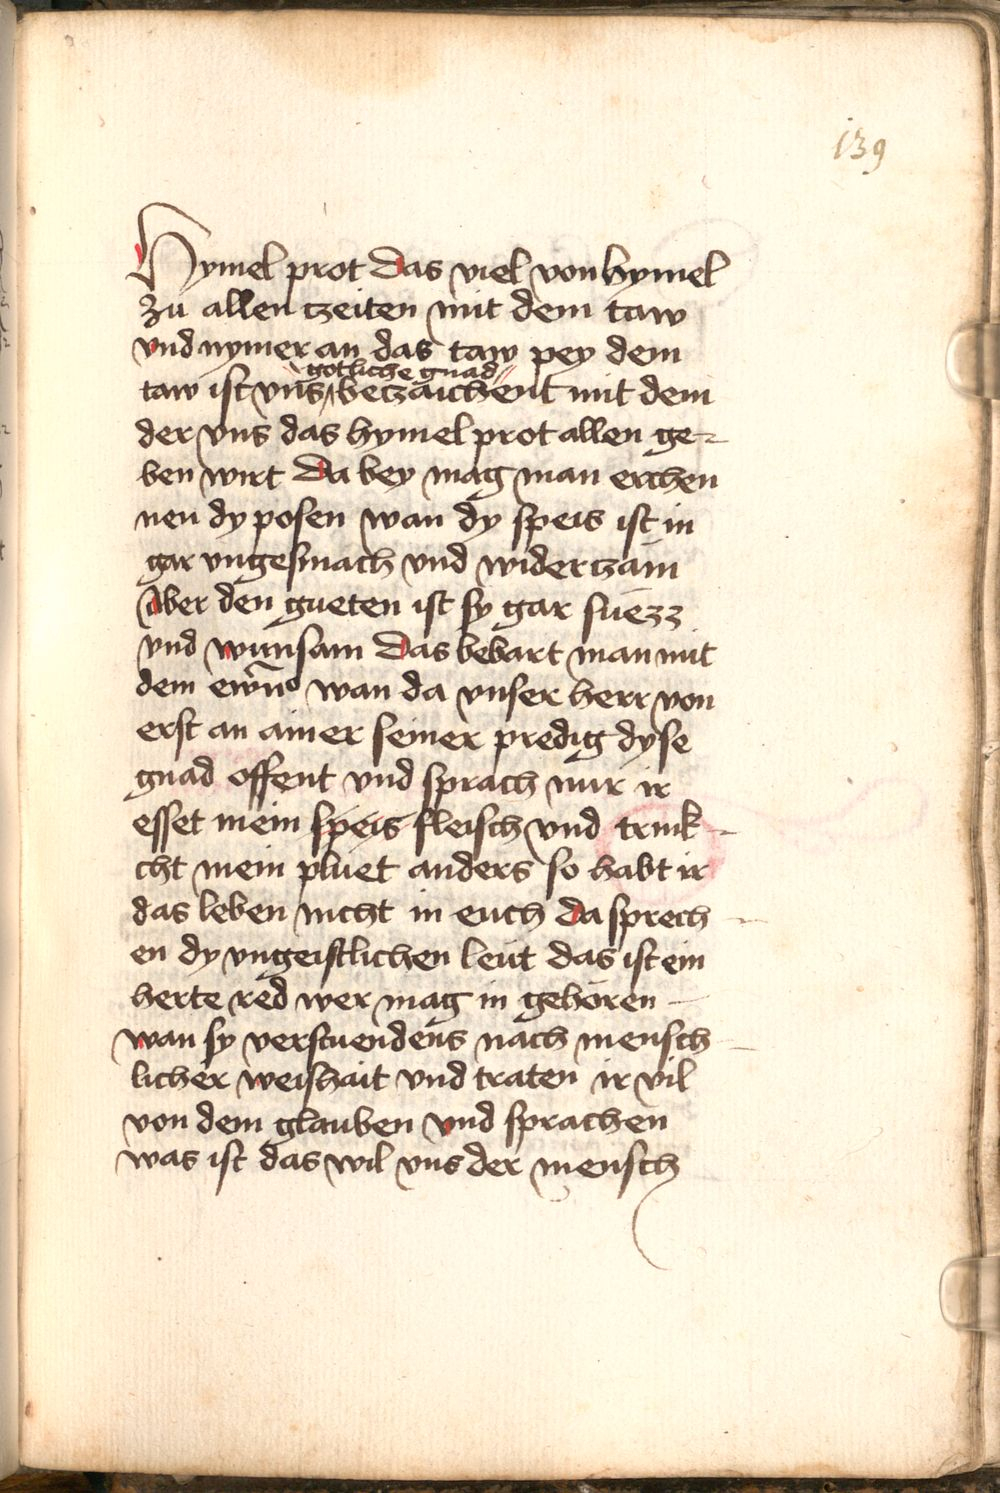 139
Hymel prot Das viel von hymel
zu allen tzeiten mit dem taw
vnd nymer an das taw pey dem
gotliche gnad
taw ist vns betzaichent mit dem
der vns das hymel prot allen ge-
ben wirt Da bey mag man erchen
nen dy posen wan dy speis ist in
gar vngesmach vnd widertzam
Aber den gueten ist sy gar suezz
vnd wunsam Das bebart man mit
dem wan da vnser herr von
erst an ainer seiner predig dyse
gnad offent vnd sprach nur ir
esset mein speis fleisch vnd trink-
cht mein pluet anders so habt ir
das leben nicht in euch Da sprech-
en dy vngeistlichen leut das ist ein
herte red wer mag in gehoren
wan sy verstuendens nach mensch-
licher weishait vnd traten ir vil
von dem glauben vnd sprachen
was ist das wil vns der mensch